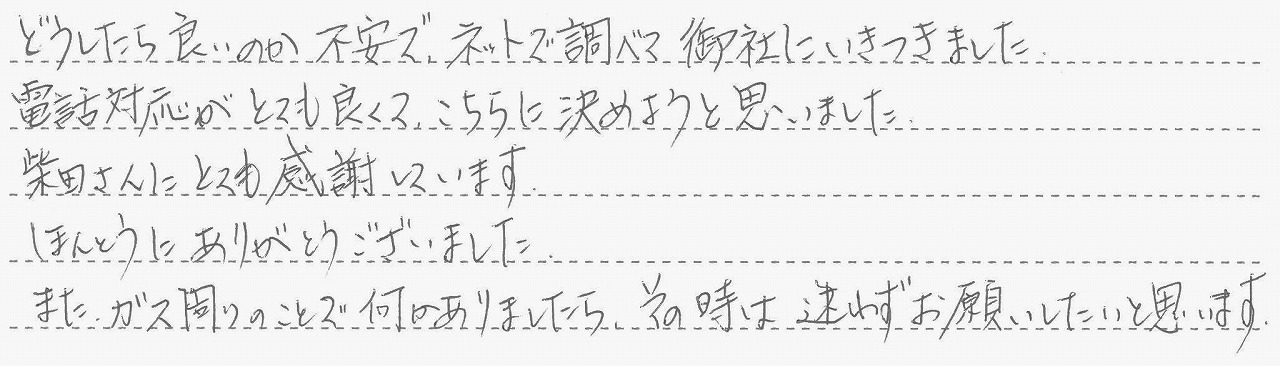 どうしたら良いのか不安で、ネットで調べて御社にいきつきました。
電話対応がとても良くて、こちらに決めようと思いました。
柴田さんにとても感謝しています。
ほんとうにありがとうございました。
また、ガス周りのことで何かありましたら、その時は迷わずお願いしたいと思います。